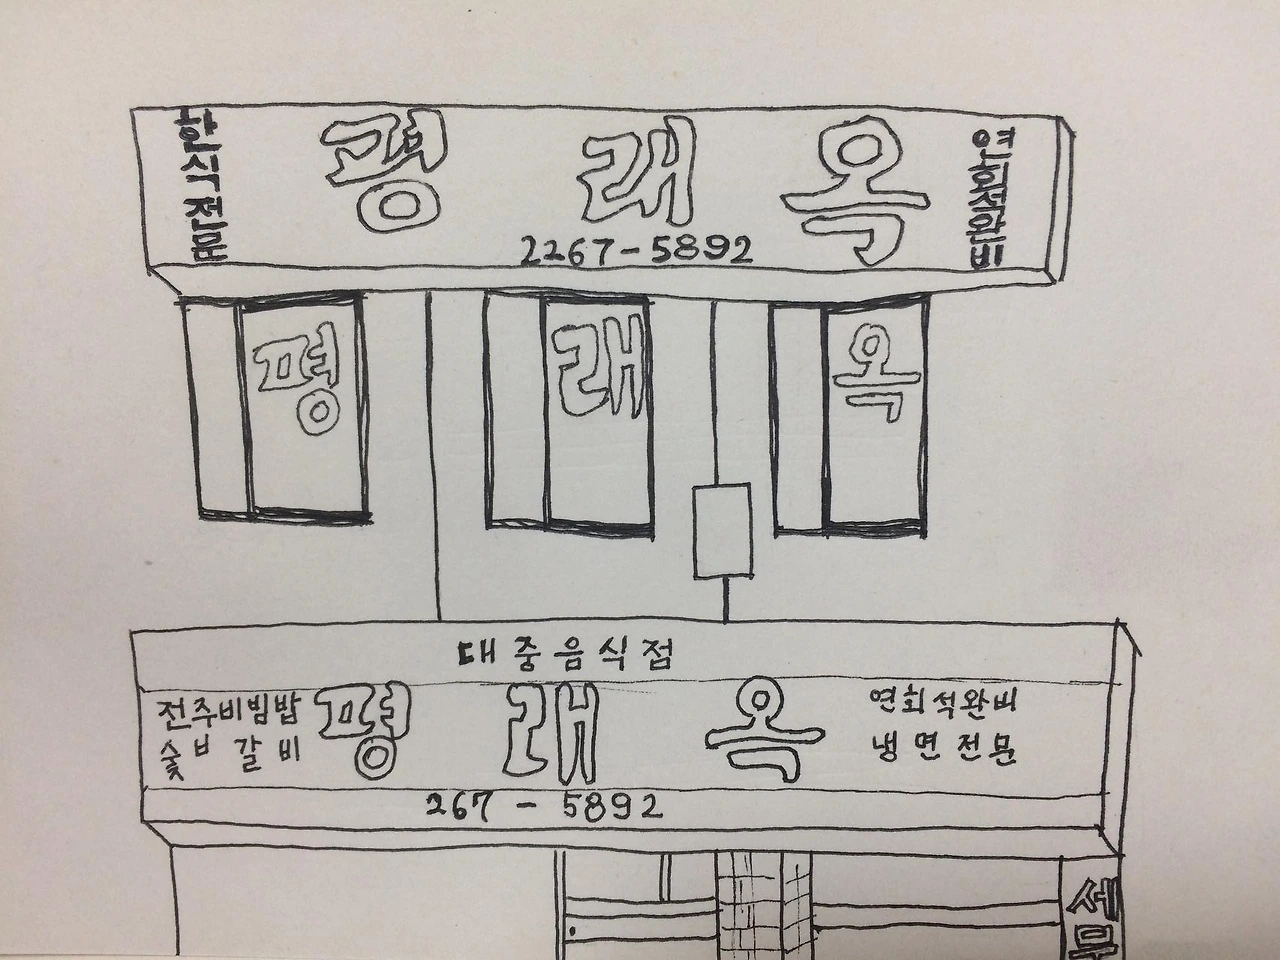 한식전문
평래옥
연회석완비
2267-5892
평
래
옥
대중음식점
전주비빔밥
숯비 갈비
평래옥
연회석완비
냉면전문
267 - 5892
세무